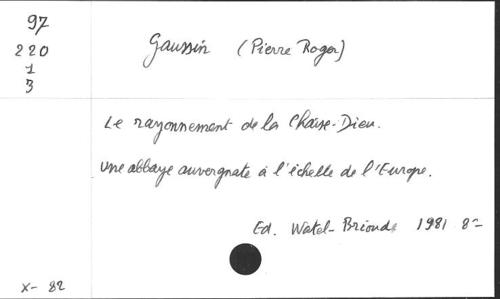 97
220
1
3
Gaussin (Pierre Roger)
Le rayonnement de la Chaise-Dieu.
une abbaye auvergnate à l'échelle de l'Europe.
Ed. Watel-Brioude 1981 8=
X- 82